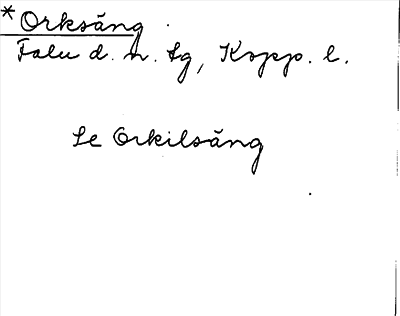 *Orksäng
Falu d. n. tg, Kopp. l.
Se Orkilsäng